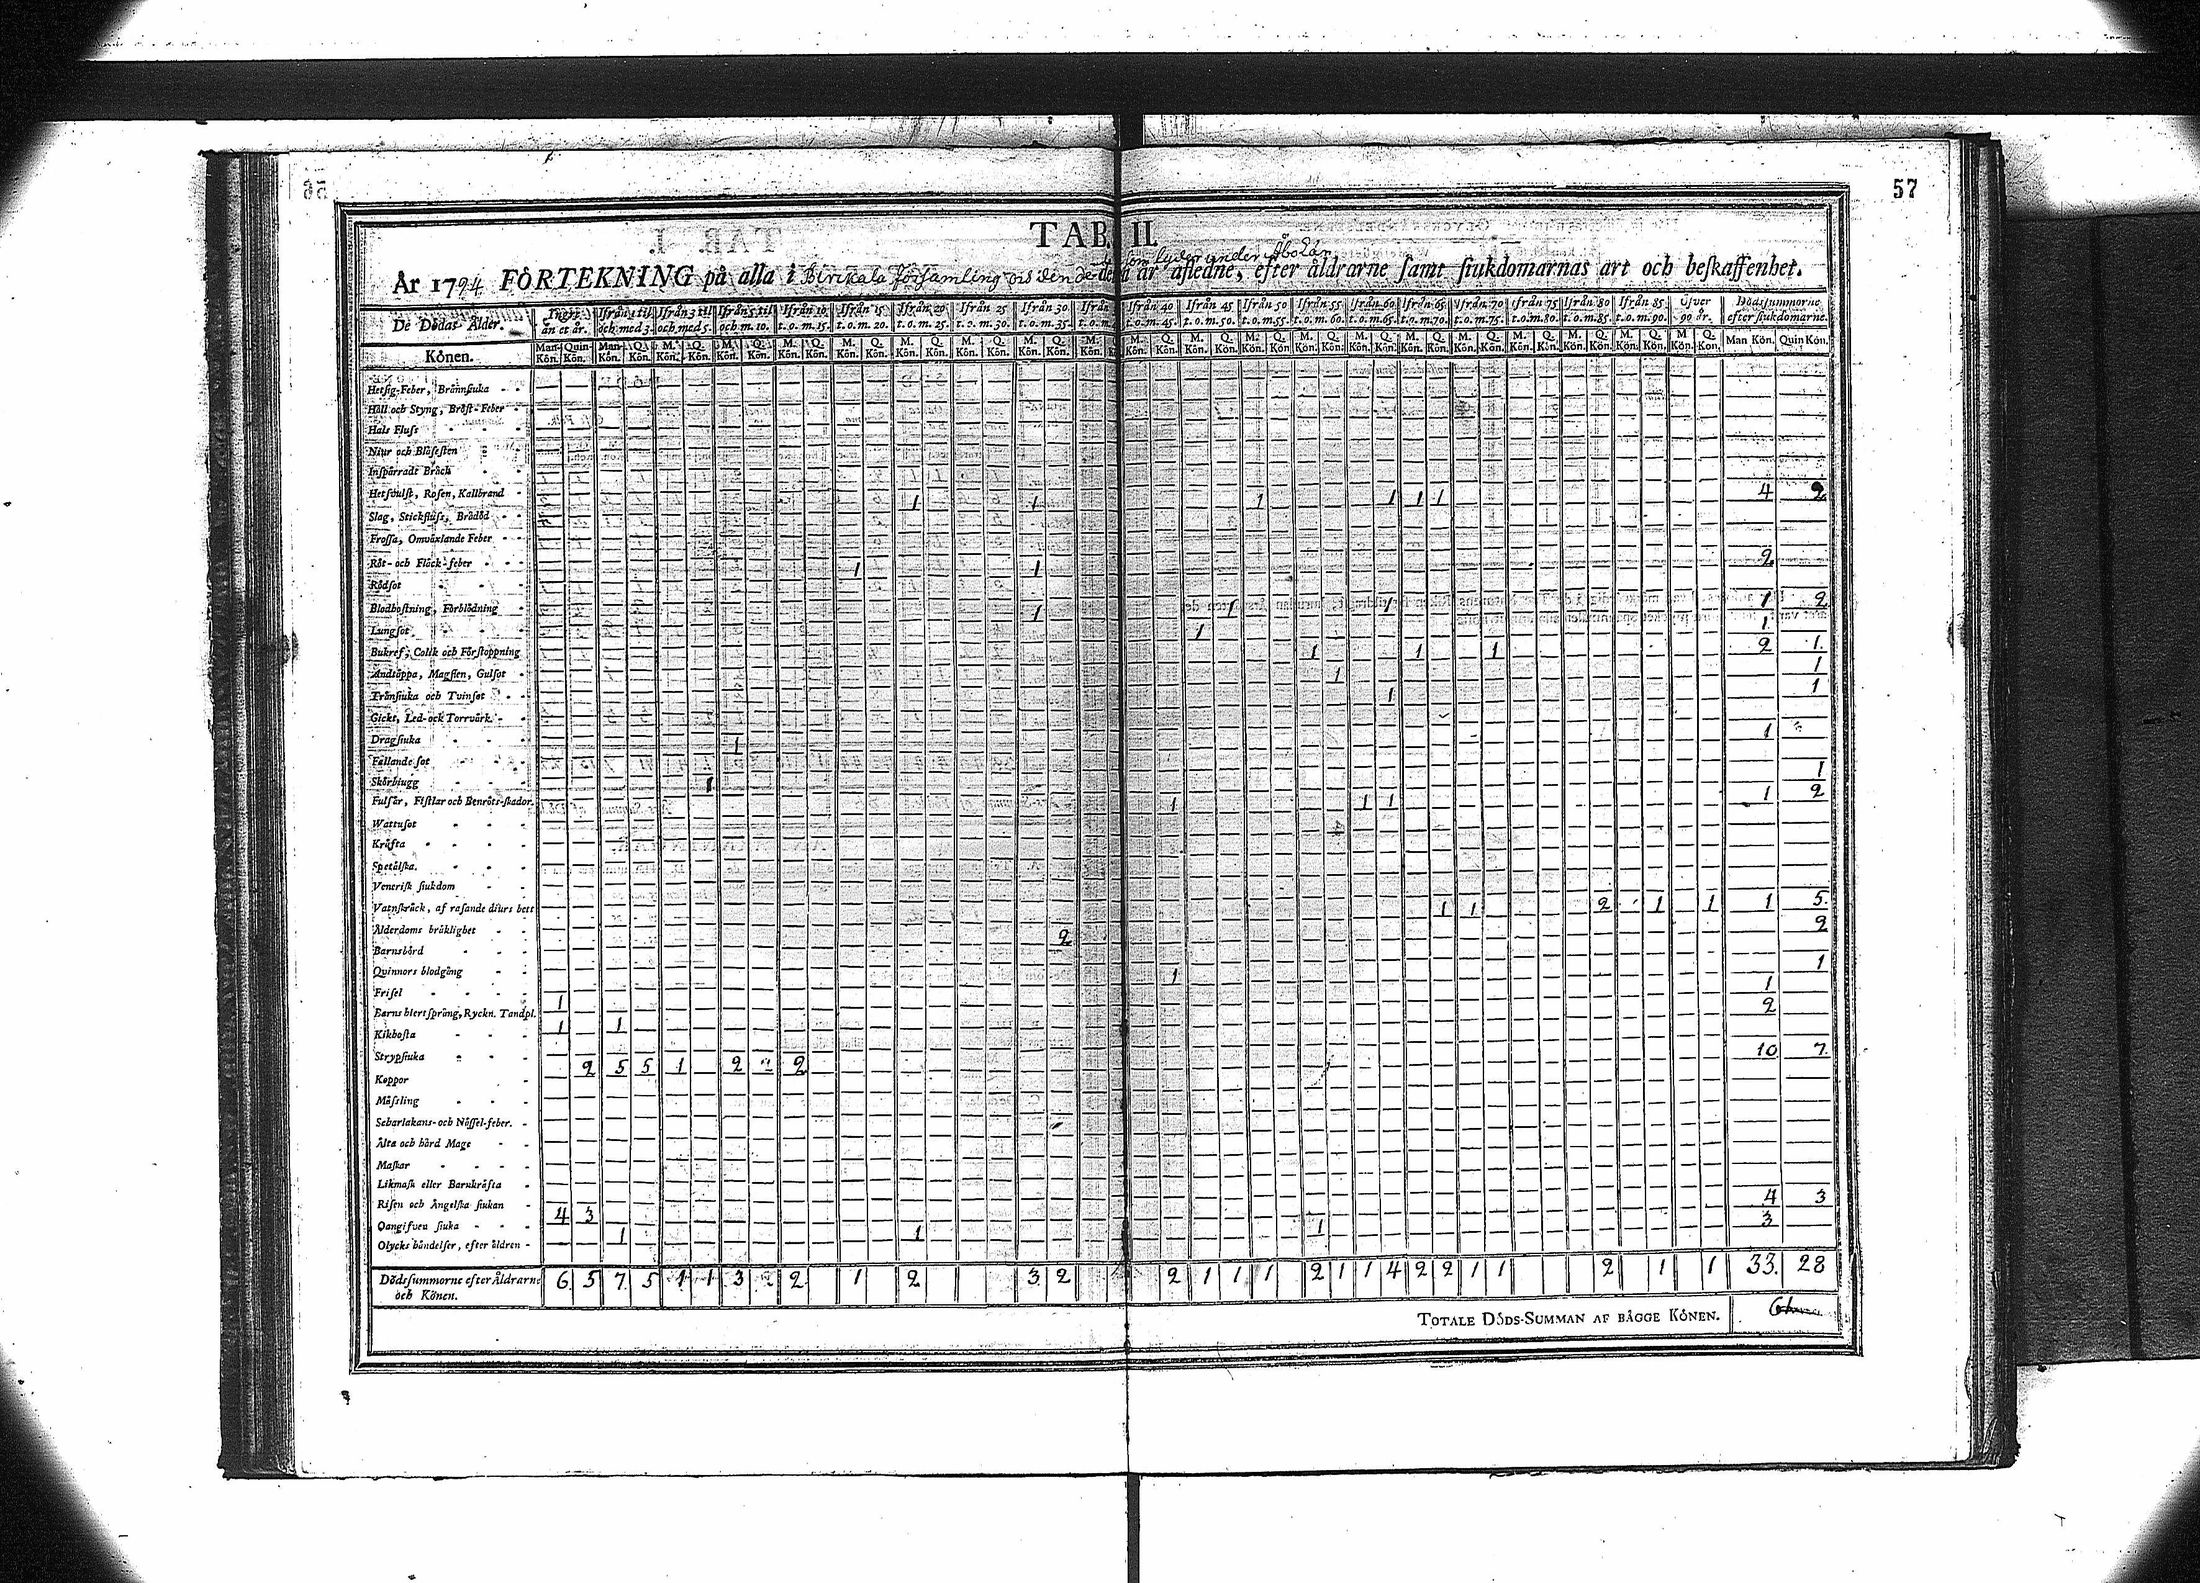 57
TAB. II.
som lyder under Åbo Län
År 1794 FÖRTEKNING på alla i Birkala församling detta år afledne, efter åldrarne samt siukdomarnas art och beskaffenhet.
De Dödas Ålder. Ifrån 1 til och med 3. Ifrån 3 til och med 5. Ifrån 5 til och m. 10. Ifrån 10 t.o.m. 15. Ifrån 15 t.o.m. 20. Ifrån 20 t.o.m. 25. Ifrån 25 t.o.m. 30. Ifrån 30 t.o.m. 35. Ifrån 40 t.o.m. 45. Ifrån 45 t.o.m. 50. Ifrån 50 t.o.m. 55. Ifrån 55 t.o.m. 60. Ifrån 60 t.o.m. 65. Ifrån 65 t.o.m. 70. Ifrån 70 t.o.m. 75. Ifrån 75 t.o.m. 80. Ifrån 80 t.o.m. 85. Ifrån 85 t.o.m. 90. Öfver 90 år. Dödssummorne efter siukdomarne.
Könen. Man Kön. Quin Kön.
Hetsig-Feber, Brännsiuka
Håll och Styng, Bröst-Feber
Hals Fluss
Niur och Blåsesten
Inspärradt Bråck
Hetsvulst, Rosen, Kallbrand
Slag, Stickfluss, Brådöd 1 1 1 1 1 1 4 2
Frossa, Omväxlande Feber
Röt- och Fläck-feber
Rödsot 1 1 2
Blodhostning, Förblödning
Lungsot 1 1 1 1 2
Bukref, Colik och Förstoppning 1 1
Andtäppa, Magsten, Gulsot 1 1 1 2 1
Trånsiuka och Tvinsot 1 1
Gickt, Led- och Torrvärk 1 1
Dragsiuka
Fallande sot 1 1
Skörbiugg
Fulsår, Fistlar och Benröts-skador. 1 1
Wattusot 1 1 1 1 2
Kräfta
Spetälska.
Venerisk siukdom
Vatnskräck, af rasande diurs bett
Ålderdoms bräklighet 1 1 2 1 1 1 5
Barnsbörd 2 2
Quinnors blodgång
Frisel 1 1
Barns hiertsprång, Ryckn. Tandpl. 1 1
Kikhosta 1 1 2
Strypsiuka
Koppor 2 5 5 1 2 2 2 10 7
Mässling
Scharlakans- och Nässel-feber.
Älta och hård Mage
Maskar
Likmask eller Barnkräfta
Risen och Ängelska siukan
Oangifven siuka 4 3 4 3
Olycks händelser, efter åldren 1 1 1 3
Dödssummorne efter Åldrarne och Könen. 6 5 7 5 1 1 3 2 2 1 2 3 2 2 1 1 1 2 1 1 4 2 2 1 1 2 1 1 33 28
TOTALE DÖDS-SUMMAN AF BÅGGE KÖNEN. 61